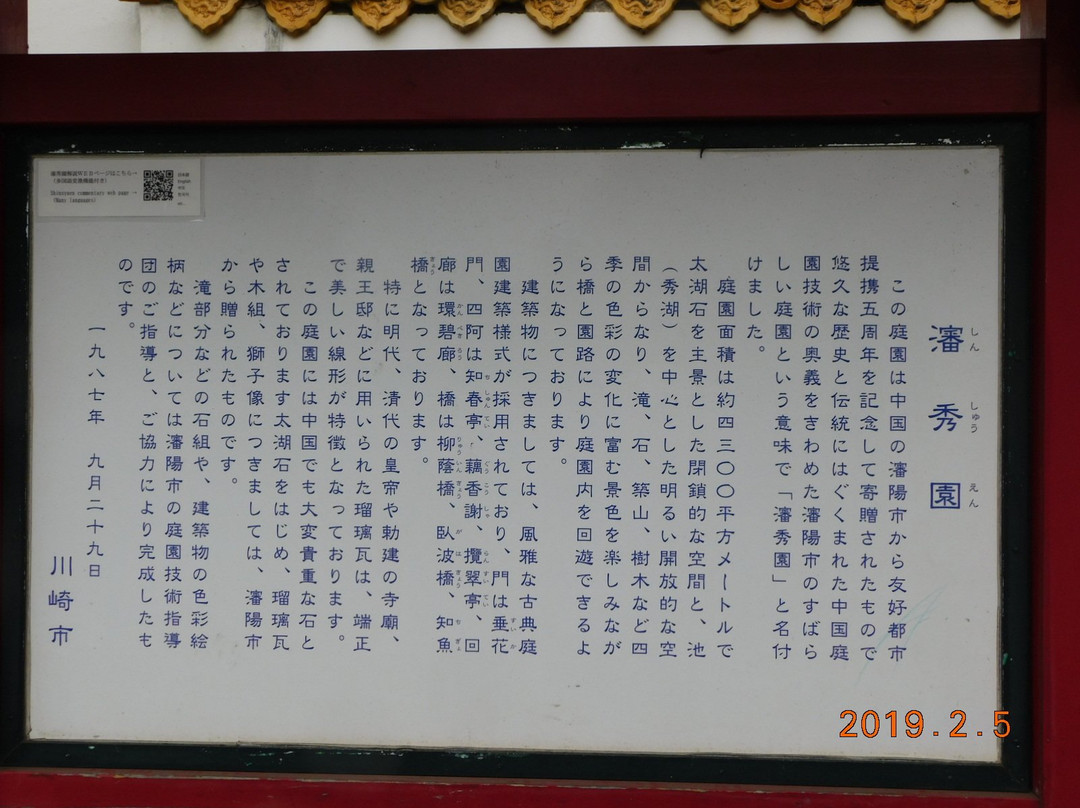 瀋秀園
しん しゅう えん
この庭園は中国の瀋陽市から友好都市
提携五周年を記念して寄贈されたもので
悠久な歴史と伝統にはぐくまれた中国庭
園技術の奥義をきわめた瀋陽市のすばら
しい庭園という意味で「瀋秀園」と名付
けました。
庭園面積は約四三〇〇平方メートルで
太湖石を主景とした閉鎖的な空間と、池
(秀湖)を中心とした明るい開放的な空
間からなり、滝、石、築山、樹木など四
季の色彩の変化に富む景色を楽しみなが
ら橋と園路により庭園内を回遊できるよ
うになっております。
建築物につきましては、風雅な古典庭
園建築様式が採用されており、門は垂花
門、四阿は知春亭、藕香謝、攬翠亭、回
廊は環碧廊、橋は柳蔭橋、臥波橋、知魚
橋となっております。
特に明代、清代の皇帝や勅建の寺廟、
親王邸などに用いられた瑠璃瓦は、端正
で美しい線形が特徴となっております。
この庭園には中国でも大変貴重な石と
されております太湖石をはじめ、瑠璃瓦
や木組、獅子像につきましては、瀋陽市
から贈られたものです。
滝部分などの石組や、建築物の色彩絵
柄などについては瀋陽市の庭園技術指導
団のご指導と、ご協力により完成したも
のです。
一九八七年 九月二十九日
川崎市
2019.2.5